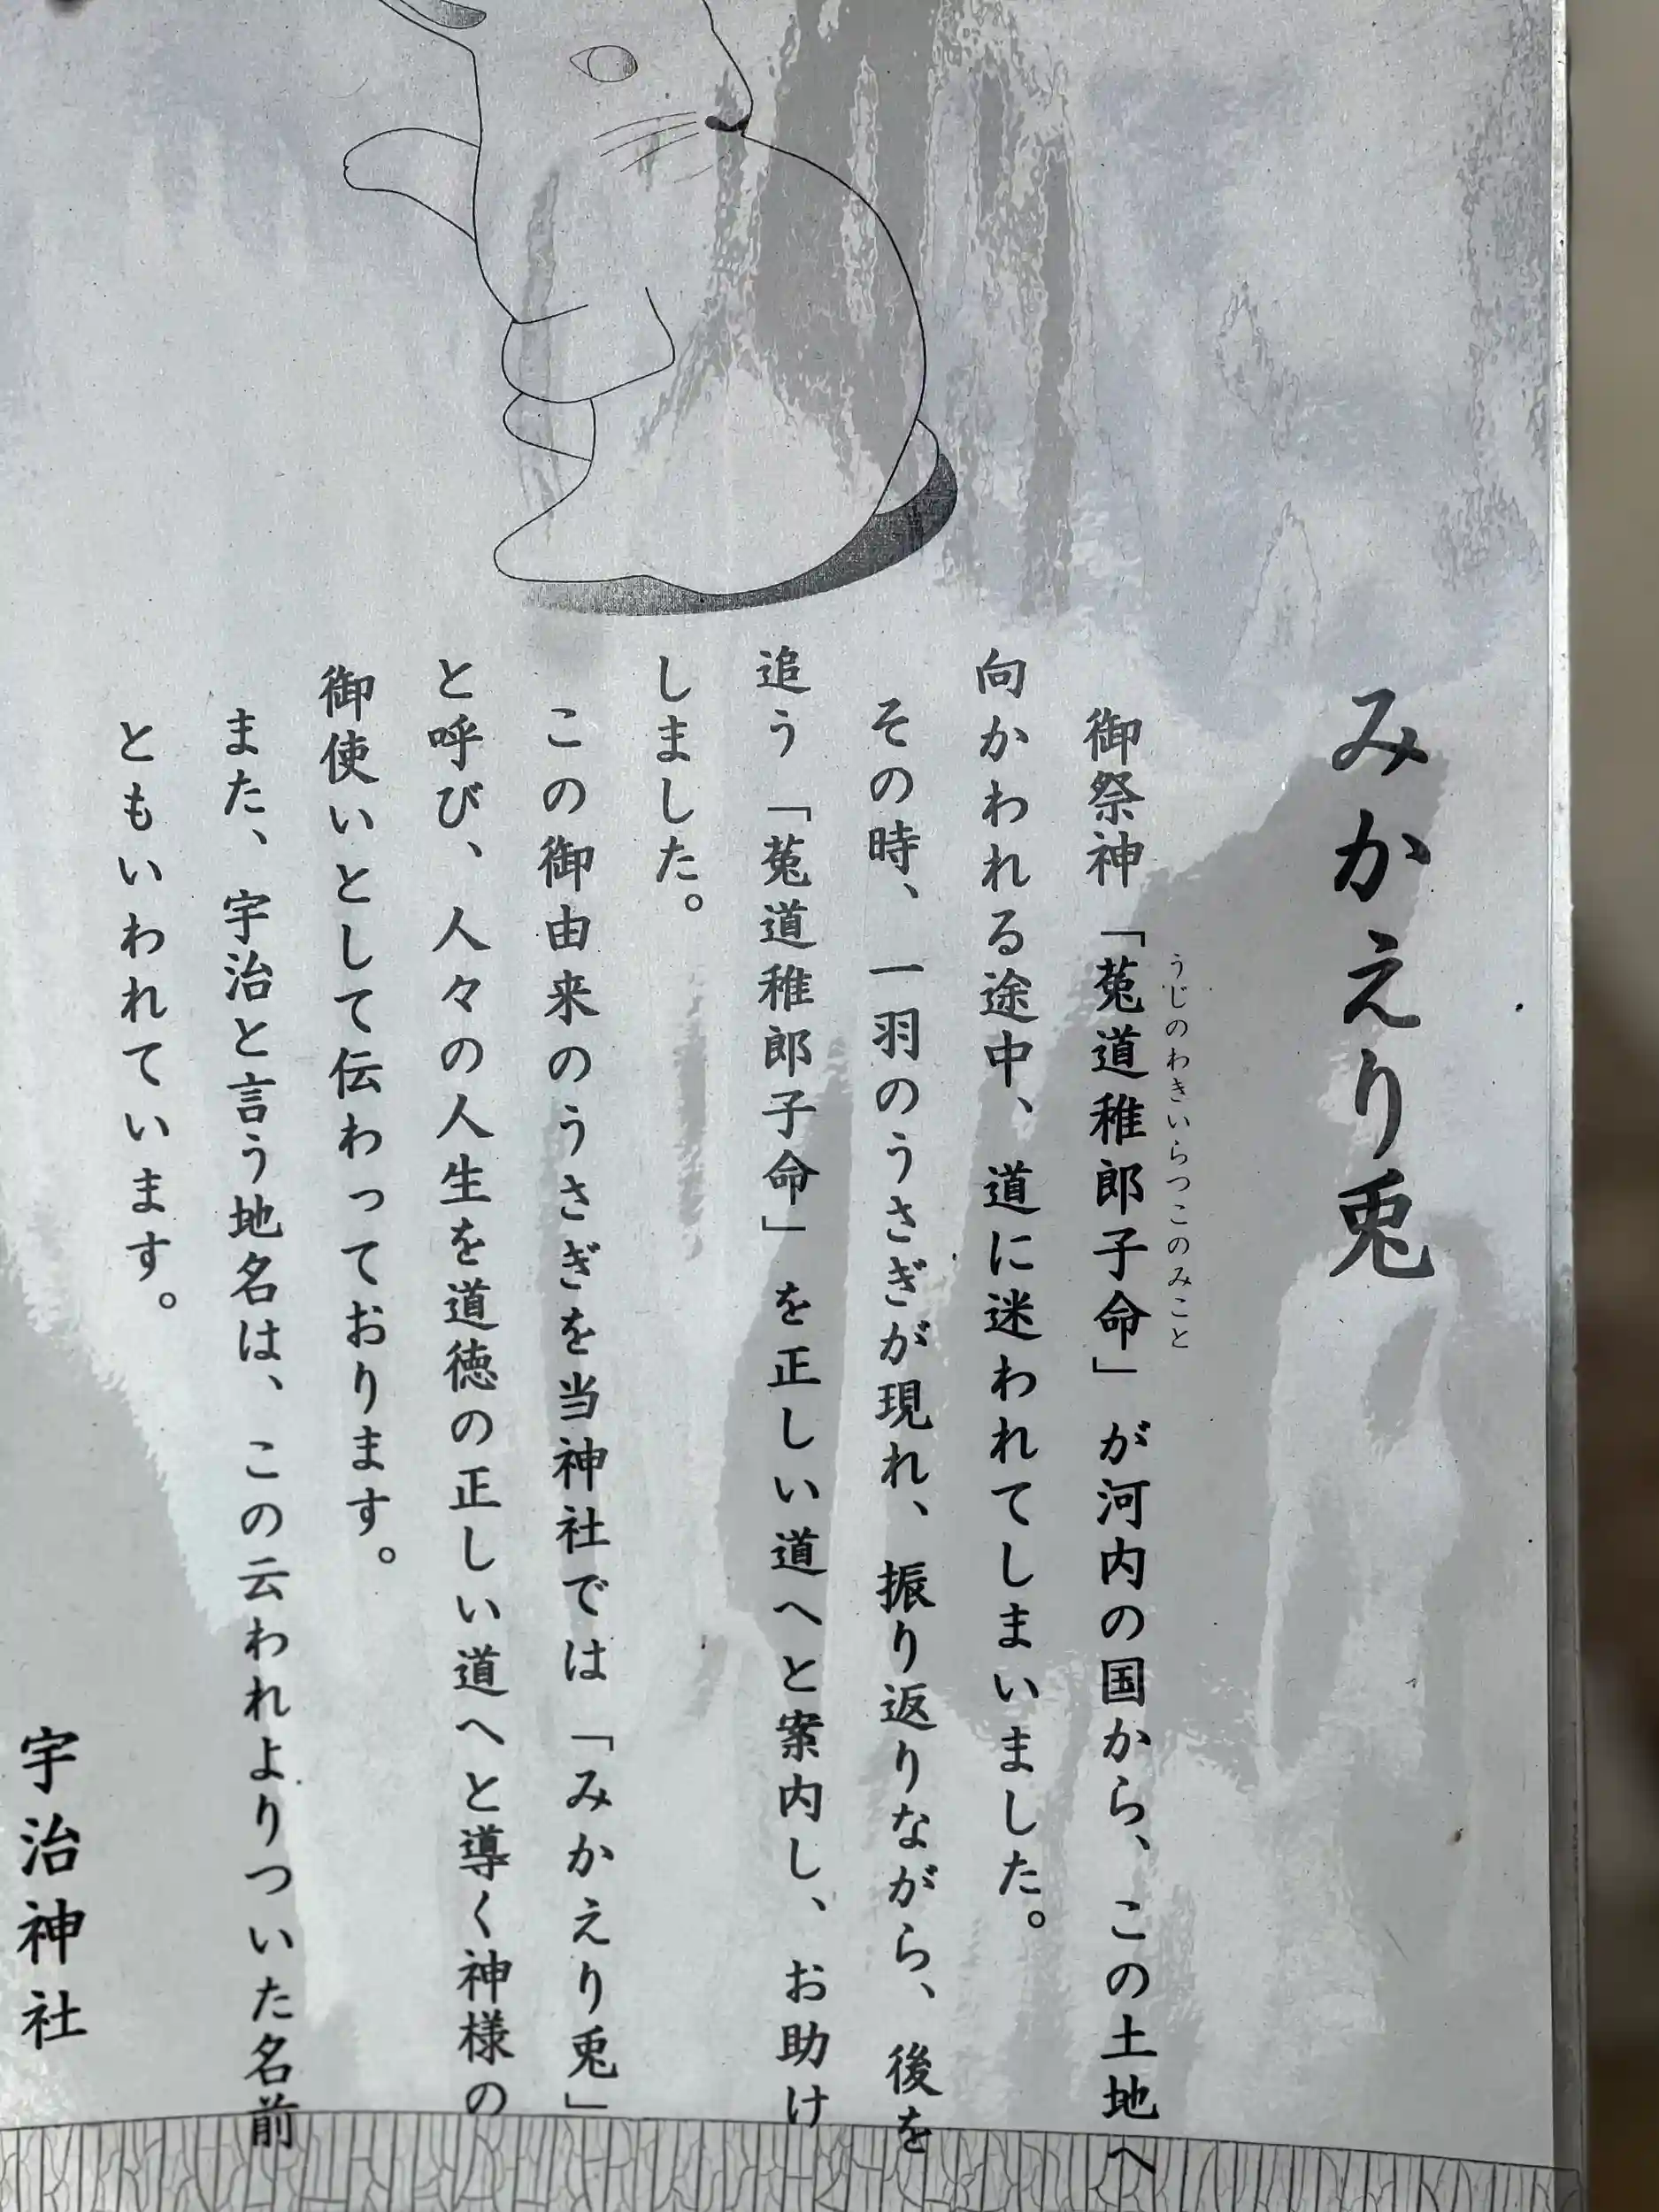 みかえり兎
うじのわきいらつこのみこと
御祭神「菟道稚郎子命」が河内の国から、この土地へ
向かわれる途中、道に迷われてしまいました。
その時、一羽のうさぎが現れ、振り返りながら、後を
追う「菟道稚郎子命」を正しい道へと案内し、お助け
しました。
この御由来のうさぎを当神社では「みかえり兎」
と呼び、人々の人生を道徳の正しい道へと導く神様の
御使いとして伝わっております。
また、宇治と言う地名は、この云われよりついた名前
ともいわれています。
宇治神社